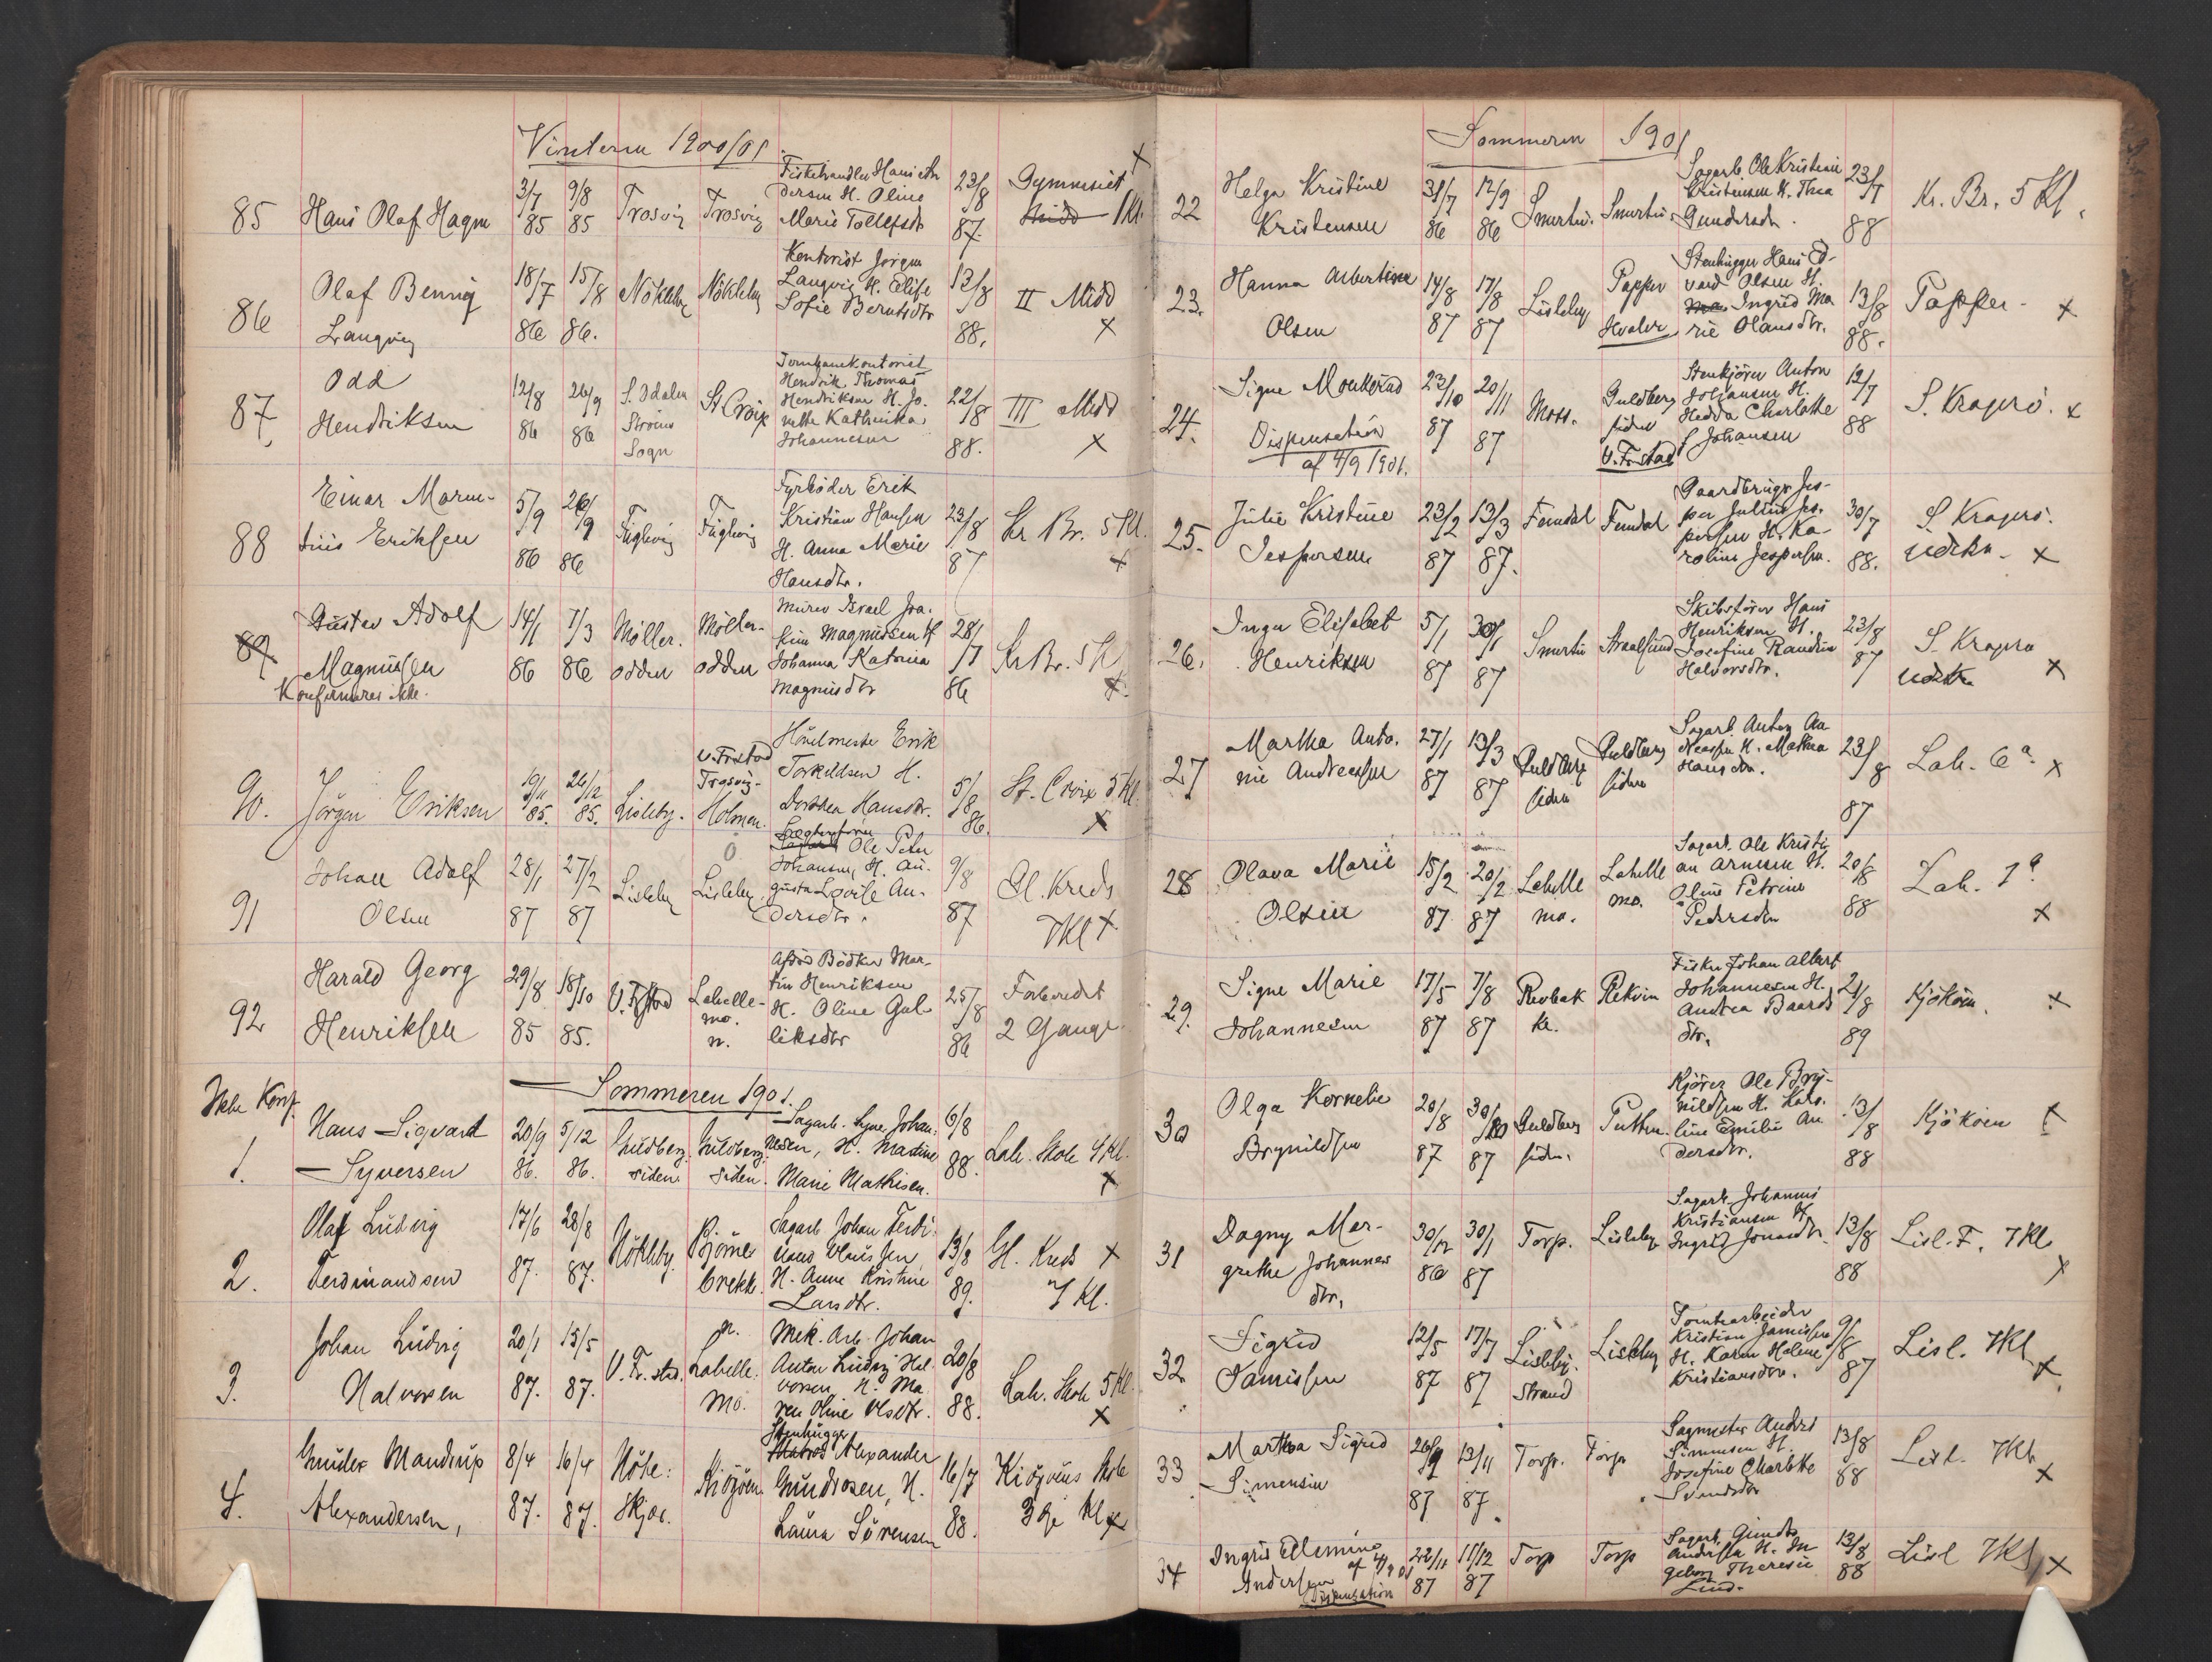 Vinteren 1900/01
85 Hans Olaf Hagen 3/7 85 9/8 85 Trosvig Trosvig Fiskehandler Hans
dersen H. Oline
Marie Tollefsdtr 23/8 87 Gymnasiet 1 Kl. x
86 Olaf Bennig
Langvig 18/7 86 15/8 86. Nökleby Nökleby Kontorist Jörgen
Langvig H. Elise
Sofie Berntsdtr 13/8 88. II Midd x
87 Odd
Hendriksen 12/8 86 26/9 86 S. Odalen
Ströms
Sogn St. Croix Jernbanekontorist
Hendrik Thomas
Hendriksen H. Jo-
nette Kathinka
Johannesen 22/8 88. III Midd x
88 Einar Maren-
tius Eriksen 5/9 86 26/9 86 Fuglevig Fuglevig Fyrböder Erik
Kristian Hansen
H. Anna Marie
Hansdtr. 23/8 87 Kr Br. 5 Kl. x
89 Gustav Adolf
Magnussen
Konfirmeres ikke. 14/1 86 7/3 86 Möller.
odden Möller-
odden Murer Israel Joa-
kim Magnussen H
Johanna Katrina
Magnusdtr 28/7 86 Kr Br. 5 Kl x
90. Jörgen Eriksen 19/11 85. 26/12 85. Lisleby. V. Frstad
Trosvig-
Holmen. Hövelmester Erik
Torkildsen H.
Dorthea Hansdtr. 5/8 86. St. Croix 5 Kl. x
91 Johan Adolf
Olsen 28/1 87 27/2 87 Lisleby Lisleby Ole Peter
Johansen H. Au-
gusta Lovise An-
dersdtr. 9/8 87 Gl. Kreds
7 Kl x
92 Harald Georg
Henriksen 29/8 85 18/10 85. V. Frstad Labelle-
mo.
n. Afdöd Bödker Mar-
tin Henriksen
H. Oline Gul-
liksdtr 25/8 86 Forberedt
2 Gange
Sommeren 1901.
Ikke Konf.
1. Hans Sigvard
Syversen 20/9 86. 5/12 86. Guldberg-
siden Guldberg-
siden. Sagarb. Syver Johan-
nesen, H. Martine
Marie Mathisen. 6/8 88. Lah. Skole 4 Kl. x
2. Olaf Ludvig
Ferdinandsen 17/6 87. 28/8 87. Nökleby. Bjørne
brekk. Sagarb Johan Ferdi-
nand Olaussen
H. Anne Kristine
Larsdtr. 13/8 89. Gl. Kreds x
7 Kl.
3. Johan Ludvig
Halvorsen 20/1 87. 15/5 87. V. Fr. stad. n.
Labelle.
mo. Mek. Arb. Johan
Anton Ludvig Hal-
vorsen H. Ma-
ren Oline Olsdtr. 20/8 88. Lah. Skole 5 Kl. x
4. Gunder Mandrup
Alexandersen, 8/4 87. 16/4 87. Nöte:
Skjær. Kiöjöen. Stenhugger
Alexander
Gundrosen, H.
Laura Sörensen 16/7 88. Kiöjöens Skole
3dje Kl x
Sommeren 1901
22 Helga Kristine
Kristensen 31/7 86 12/9 86 Smertu. Smertu. Sagarb. Ole Kristian
Kristensen H. Thea
Gundersdtr. 23/7 88 Kr. Br. 5 Kl.
23. Hanna Albertine
Olsen 14/8 87 17/8 87 Lisleby Papper
Hvaler Stenhugger Hans Ed-
vard Olsen H.
Ingrid Ma-
rie Olausdtr. 13/8 88. Papper- x
24. Signe Monkerød
Dispensation
af 4/9 1901. 23/10 87 20/11 87 Moss. Guldberg
siden
V. Frstad Stenkjörer Anton
Johansen H.
Hedda Charlotte
Johansen 12/7 88 S. Kraperö. x
25. Julie Kristine
Jespersen 23/2 87 13/3 87. Femdal Femdal Gaardbruger Jes-
per Julius Jes-
persen H. Ka-
roline Jespersen. 30/7 88. S. Kraperö.
udekr. x
26. Inga Elisabet
Henriksen 5/1 87 30/1 87 Smertu Stralsund Skibsförer Hans
Henriksen H.
Josefine Randine
Halvorsdtr. 23/8 87 S. Kraperö
x
27 Martha Anto-
nie Andreassen 27/1 87 13/3 87 Guldberg
siden Guldberg
siden Sagarb Anton An-
dreassen H. Mathea
Hansdtr. 23/8 87 Lah. 6a x
28 Olava Marie
Olsen 15/2 87 20/2 87 Labelle
mo. Labelle
mo. Sagarb. Ole Kristi-
an Arnesen H.
Oline Petrine
Pedersdtr 20/8 88 Lah. 7a x
29. Signe Marie
Johannesen 17/5 87 7/8 87 Revbak
kl. Rekvin Fisker Johan Albert
Johannesen H.
Andrea Baards
dtr. 21/8 89 Kjököen. x
30 Olga Kornelie
Brynildsen 20/8 87 30/10 87 Guldberg
siden. Putten. Kjörer Ole Bry-
nildsen H. Karo-
line Emilie An-
dersdtr. 13/8 88 Kjököen x
31 Dagny Mar-
grethe Johannes
dtr. 30/12 86 30/1 87 Torp. Lisleby Sagarb. Johannes
Kristiansen H
Ingrid Jonasdtr. 13/8 88 Lisl. F. 7 Kl x
32. Sigrid
Jamissen 12/5 87 17/7 87 Lisleby.
Strand Lisleby Tomtearbeider
Kristian Jamissen
H. Karen Helene
Kristiansdtr. 9/8 87 Lisl. 7 Kl x
33 Martha Sigrid
Simensen 26/9 87 13/11 87. Torp. Torp Sagmester Anders
Simensen H.
Josefine Charlotte
Svendsdtr 13/8 88 Lisl. 7 Kl. x
34 Ingrid Elemine
Andersen af 4/9 01
Dispensation 22/11 87 11/12 87 Torp Torp Sagarb. Gunder
Andersen H. In-
geborg Theresie
Lund. 13/8 88 Lisl 7 Kl x